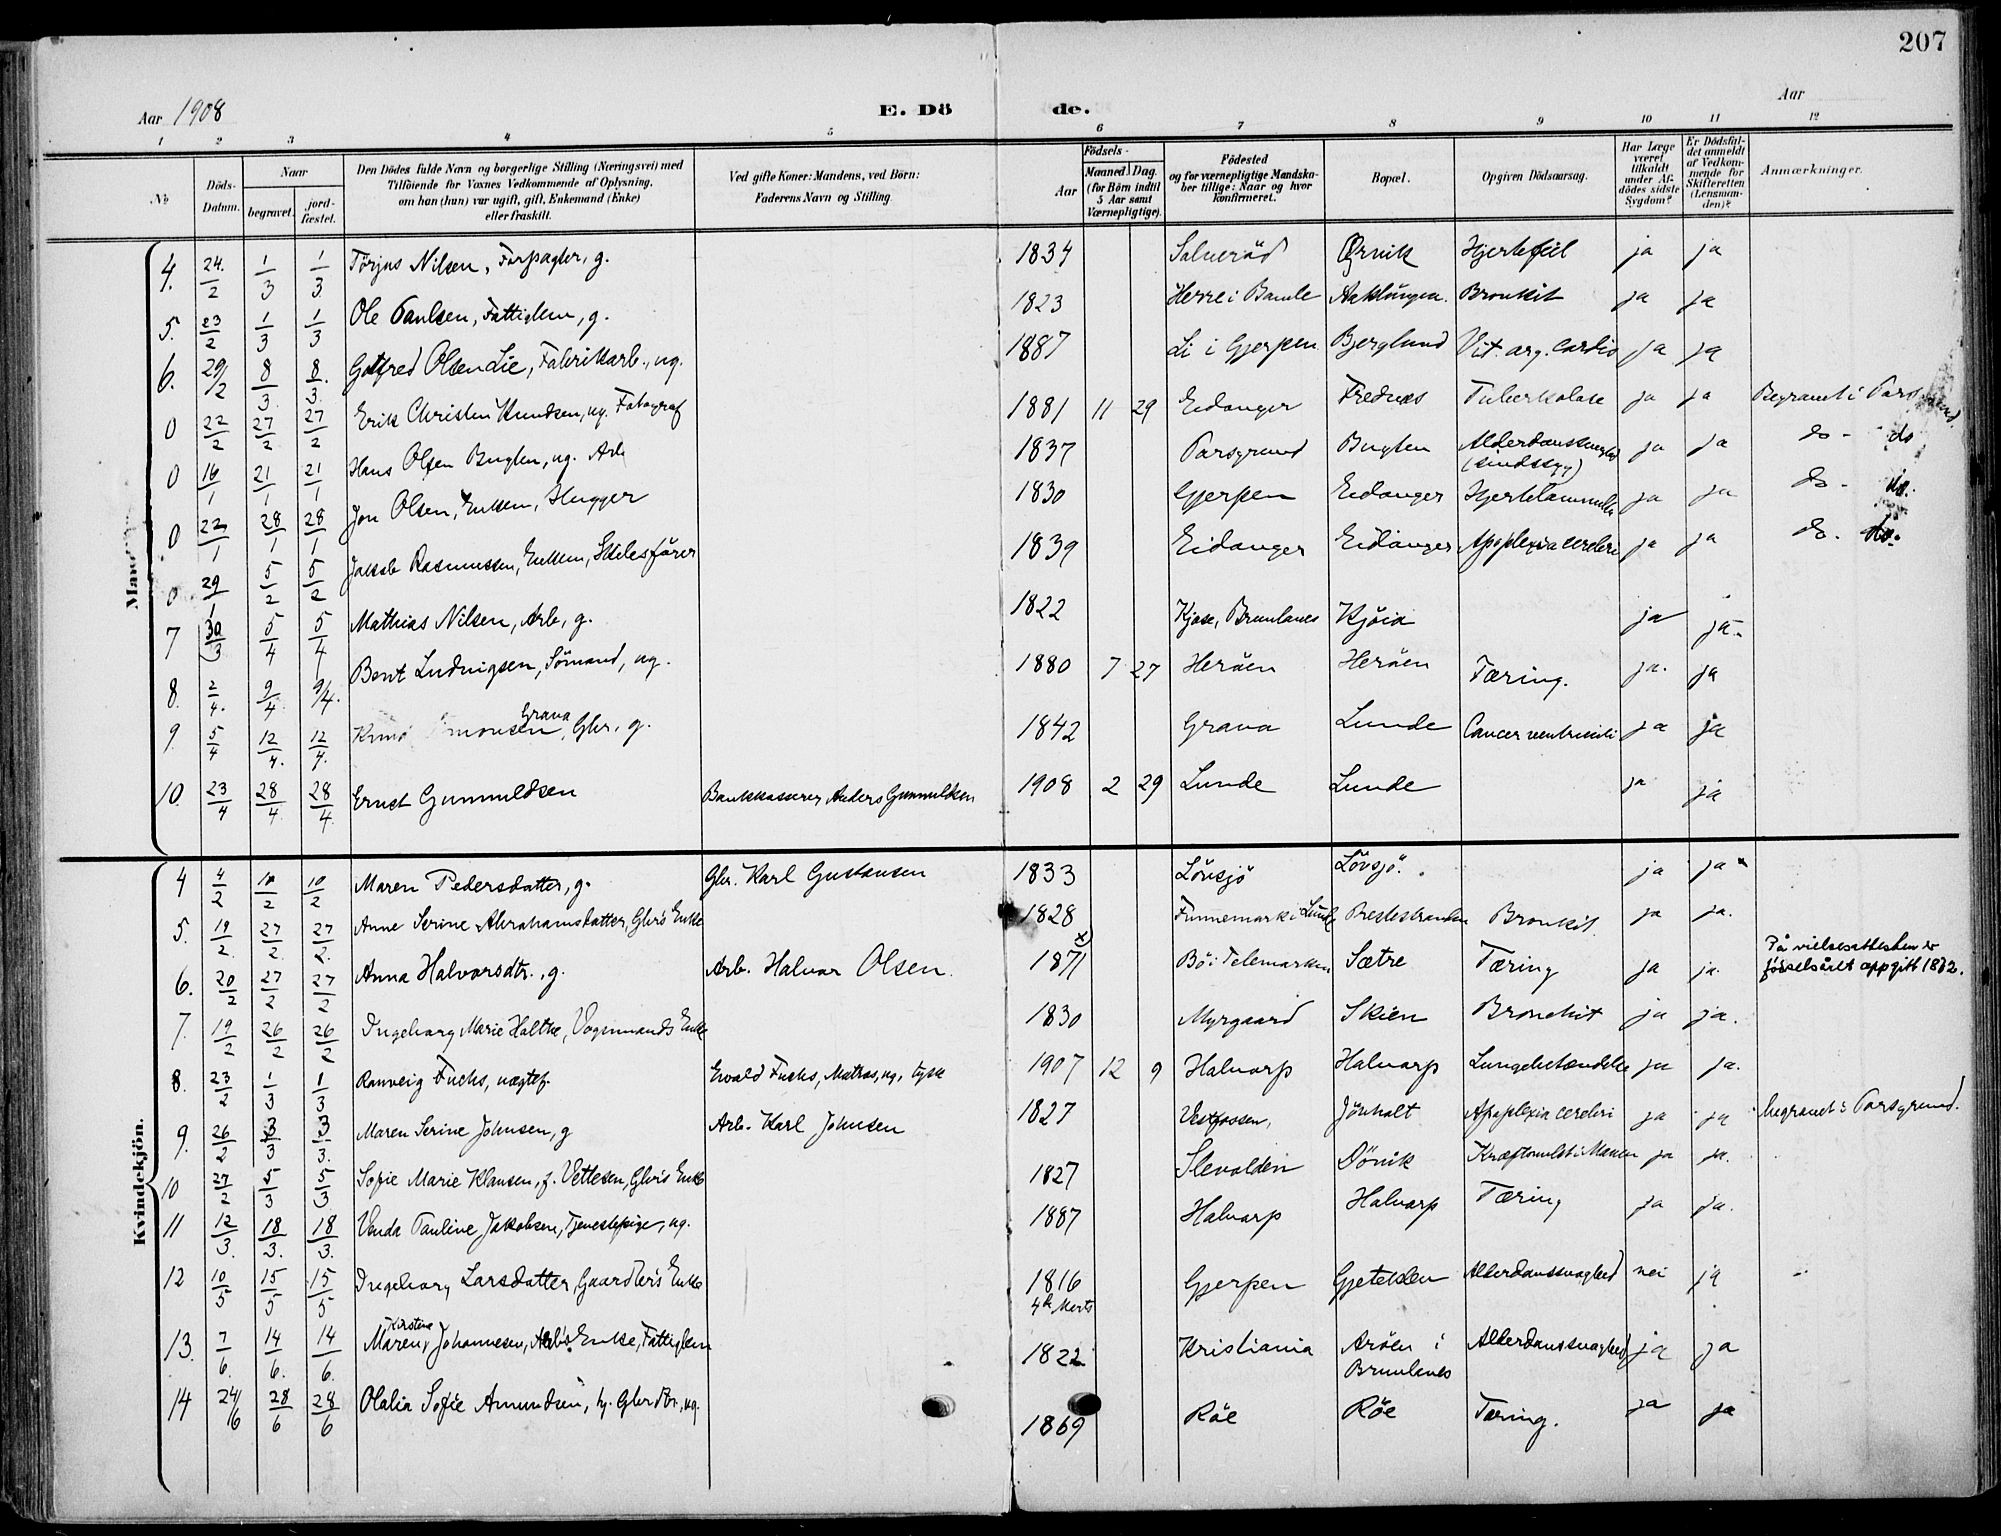 207
Aar 1908
E. Dö de.
Aar
1 2 3 4 5 6 7 8 9 10 11 12
No
Döds-Datum.
Naar begravet. jordfæstet.
Den Dödes fulde Navn og borgerlige Stilling (Næringsvei) med Tilföiende for Voxnes Vedkommende af Oplysning, om han (hun) var ugift, gift, Enkemand (Enke) eller fraskilt.
Ved gifte Koner: Mandens, ved Börn: Faderens Navn og Stilling.
Födsels- Aar Maaned Dag. (for Börn indtil 5 Aar samt Værnepligtige).
Födested og for værnepligtige Mandskaber tillige: Naar og hvor konfirmeret.
Bopæl.
Opgiven Dödsaarsag.
Har Læge været tilkaldt under Afdödes sidste Sygdom?
Er Dödsfaldet anmeldt af Vedkommende for Skifteretten (Lensmanden)?
Anmærkninger.
4. 24/2 1/3 1/3 Törjus Nilsen, Forpagter, g. 1834 Salveröd Ørvik Hjertefeil ja ja
5. 23/2 1/3 1/3 Ole Paulsen, Fattiglem, g. 1823 Herre i Bamle Aaklungen. Bronkit ja ja
6. 29/2 8/3 8/3 Gotfred Olsen Lie, Fabrikkarb., ug. 1887 Li i Gjerpen Bjerglund Vit. org. cordis ja ja
0 22/2 27/2 27/2 Erik Christen Knudsen, ug. Fotograf 1881 11 29 Eidanger Frednes Tuberkolose ja ja Begravet i Porsgrund
0 16/1 21/1 21/1 Hans Olsen Bugten, ug. Arb 1837 Porsgrund Bugten Alderdomssvaghed (sindssyg) ja ja do - do
0 22/1 28/1 28/1 Jon Olsen, Enkem, Hugger 1830 Gjerpen Eidanger Hjertelammelse ja ja do - do.
0 29/1 5/2 5/2 Jakob Rasmussen, Enkem, Skibsförer 1839 Eidanger Eidanger Apoplexia cerebri ja ja do. do.
7 30/3 5/4 5/4 Mathias Nilsen, Arb, g. 1822 Kjose, Brunlanes Kjöia ja ja.
8. 2/4. 9/4 9/4. Bent Ludvigsen, Sömand, ug. 1880 7 27 Heröen Heröen Tæring. ja. ja
9. 5/4 12/4. 12/4. Grava, Gbr, g. 1842 Grava Lunde Cancer ventriculi ja ja
10. 23/4 28/4. 28/4. Ernst Gunnuldsen Bankkasserer Anders Gunnuldsen 1908 2 29 Lunde Lunde ja ja
Kvindekjön.
4 4/2 10/2 10/2 Maren Pedersdatter, g. Gbr. Karl Gustavsen 1833 Lövsjö Lövsjö. ja ja
5. 19/2. 27/2. 27/2. Anne Serine Abrahamsdatter, Gbrs Enke 1828 Funnemark i Lunde Prestestranden Bronkit ja ja.
6. 20/2 27/2 27/2 Anna Halvorsdtr., g. Arb. Halvor Olsen. 1871 x) Bö i Telemarken Sætre Tæring ja ja. På vielsesattesten er födselsåret oppgitt 1872.
7. 19/2 26/2 26/2 Ingeborg Marie Holtke, Vognmands Enke 1830 Myrgaard Skien Bronchit ja ja.
8. 23/2 1/3 1/3 Ranveig Fuchs, uægtef. Ewald Fuchs, Matros, ug. tysk 1907 12 9 Halvarp Halvarp Lungebetændelse ja ja.
9. 26/2 3/3 3/3. Maren Serine Johnsen, g Arb. Karl Johnsen 1827 Vestfossen, Jönholt Apoplexia cerebri ja ja begravet i Porsgrund.
10 27/2 5/3 5/3 Sofie Marie Klausen, f. Vettesen, Gbrs Enke 1827 Slevolden Dörvik Kræftsvulst i Maven ja ja.
11 12/3. 18/3. 18/3. Vanda Pauline Jakobsen, Tjenestepige, ug. 1887 Halvarp Halvarp Tæring ja ja.
12 10/5 15/5 15/5 Ingeborg Larsdatter, Gaardbrs Enke 1816 4de Marts Gjerpen Gjeteklev Alderdomssvaghed nei ja
13. 7/6. 14/6. 14/6. Maren Kirstine Johannesen, Arb's Enke, Fattiglem 1822 Kristiania Aröen i Brunlanes Alderdomssvaghed ja ja
14 24/6 28/6 28/6 Olalia Sofie Amundsen, hj. Gbrdtr, ug. 1869 Röe Röe Tæring. ja ja